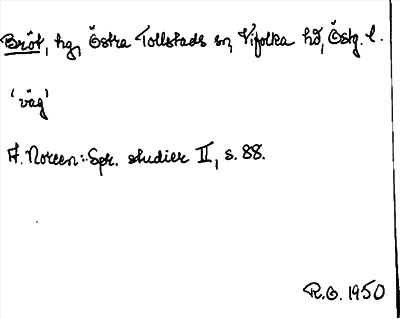 Bröt, hg, Östra Tollstads sn, Vifolka hd, Östg. l.
'väg'
A. Noreen: Spr. studier II, s. 88.
R.O. 1950